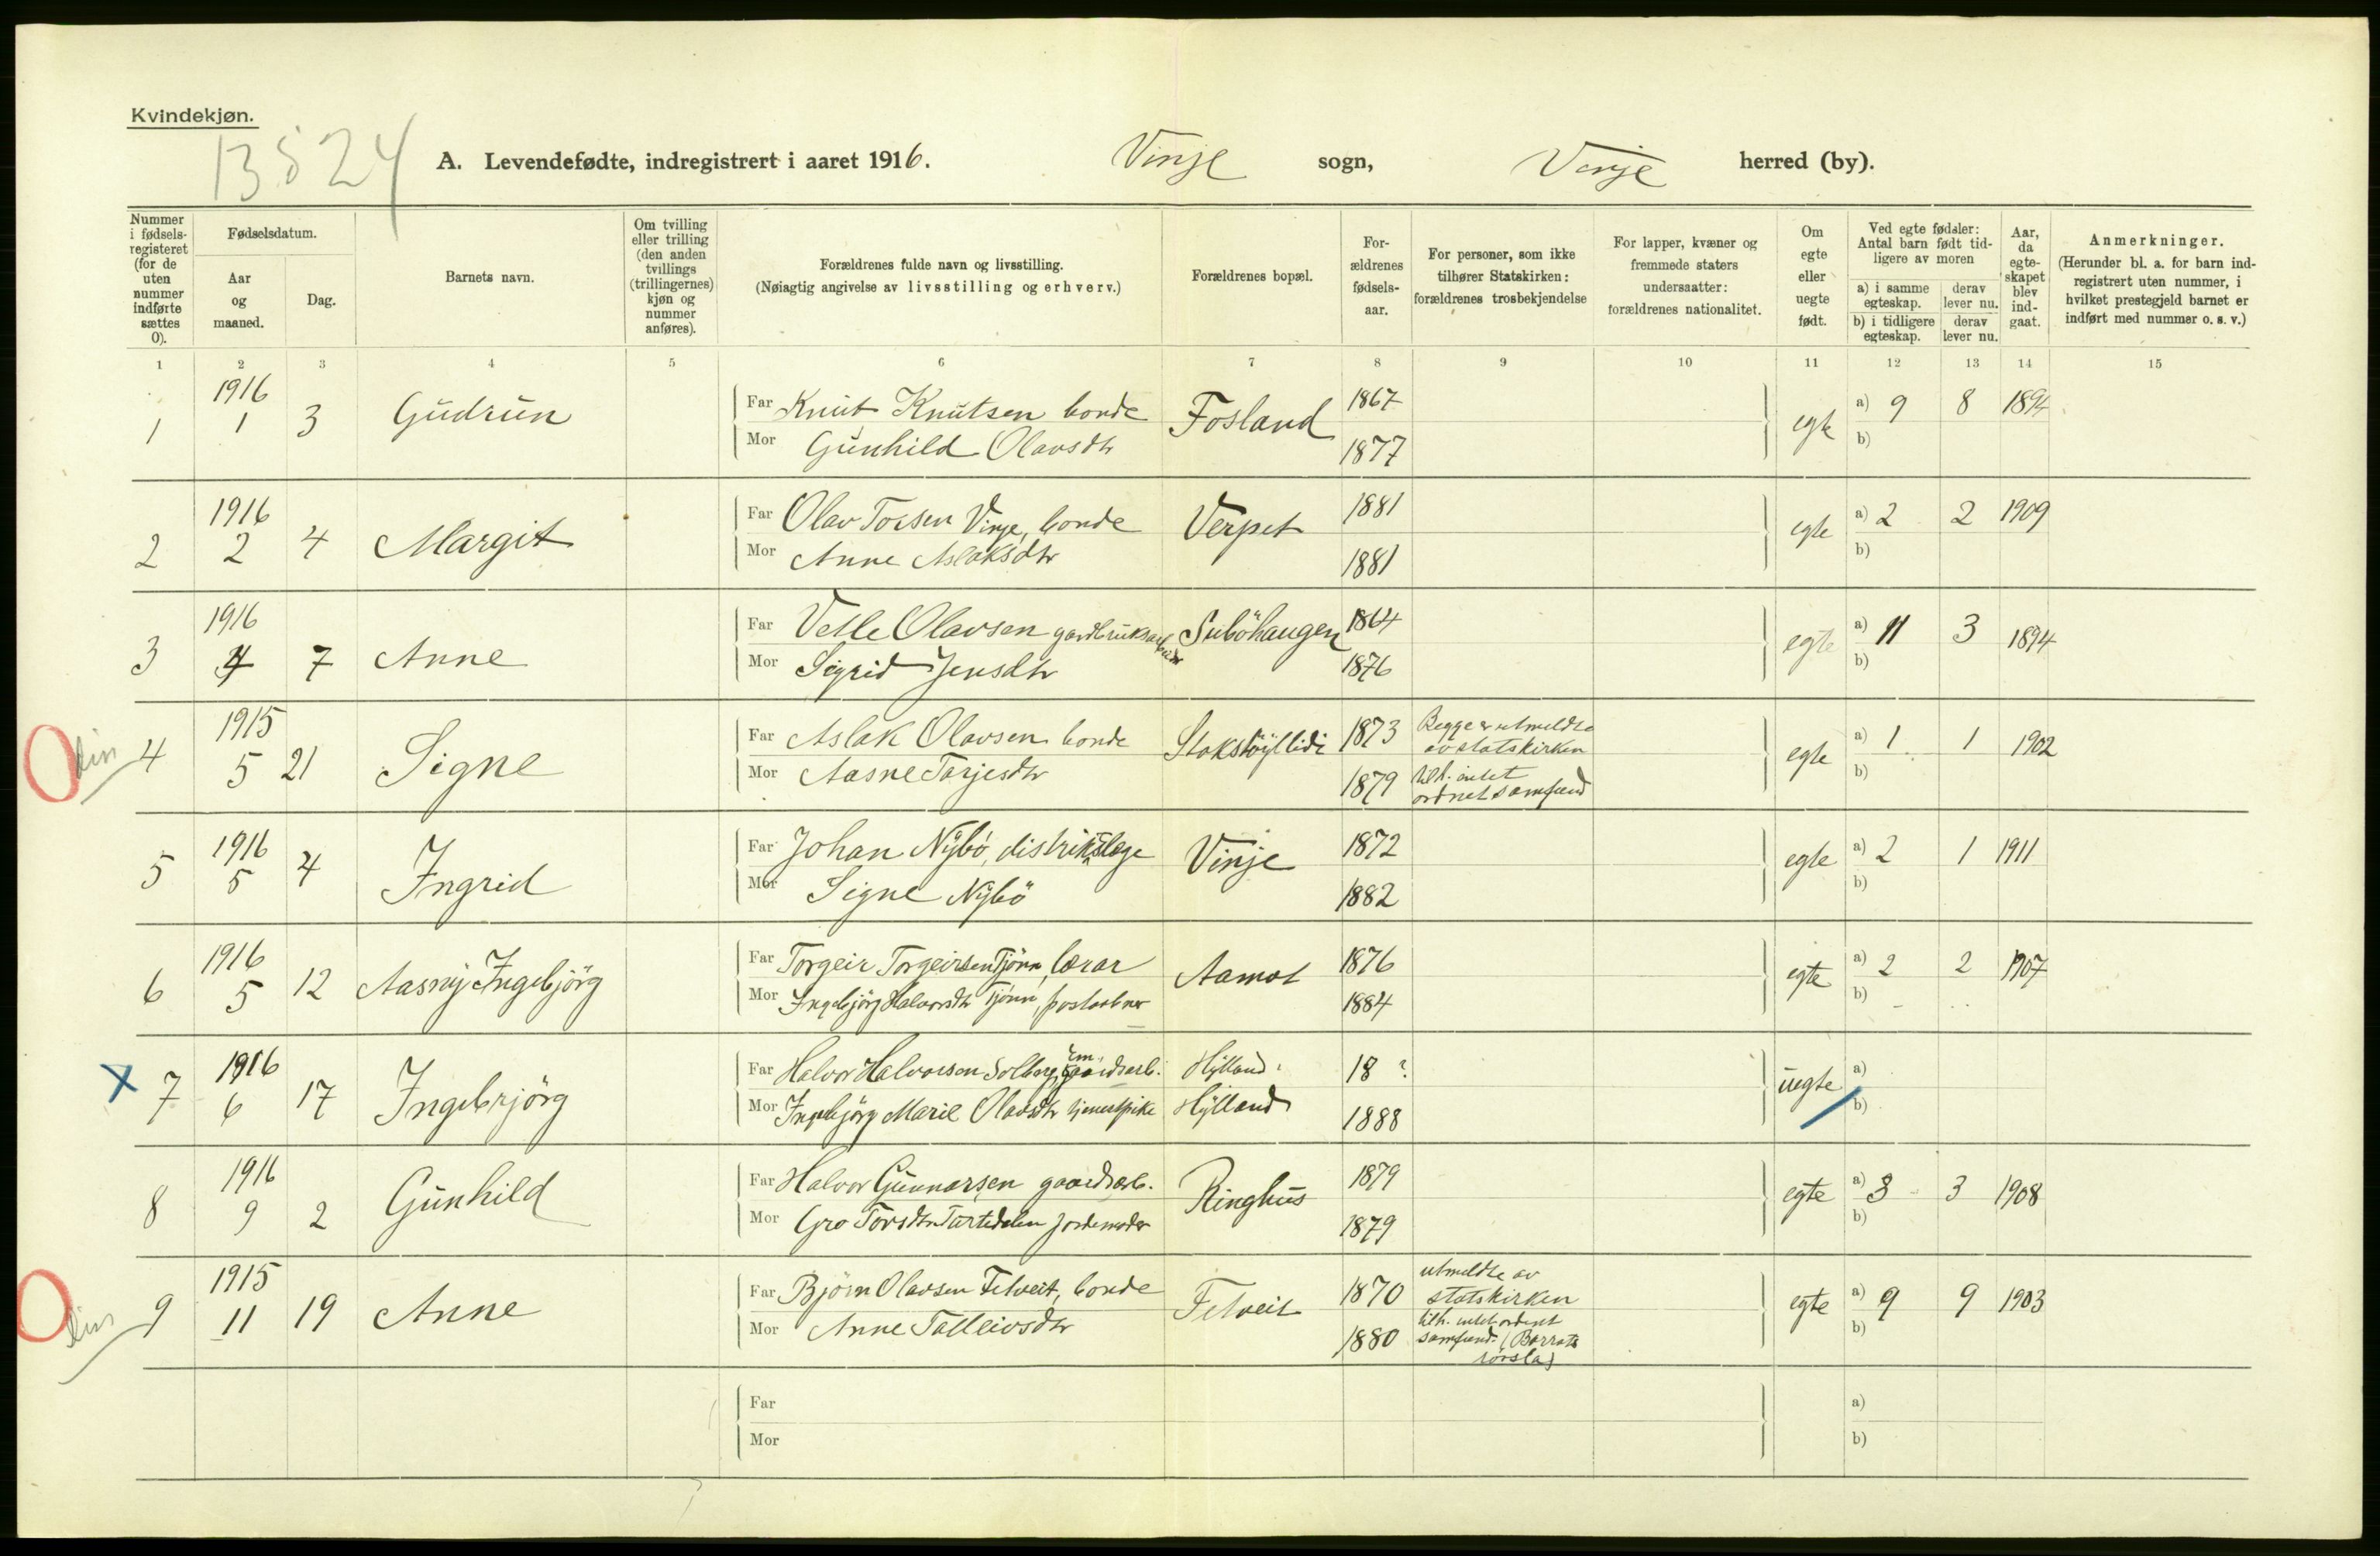 Kvindekjøn.
13524
A. Levendefødte, indregistrert i aaret 1916. Vinje sogn, Vinje herred (by).
Nummer i fødsels-registeret (for de uten nummer indførte sættes 0).
Fødselsdatum.
Aar og maaned.
Dag.
Barnets navn.
Om tvilling eller trilling (den anden tvillings (trillingernes) kjøn og nummer anføres).
Forældrenes fulde navn og livsstilling.
(Nøiagtig angivelse av livsstilling og erhverv.)
Forældrenes bopæl.
For-ældrenes fødsels-aar.
For personer, som ikke tilhører Statskirken: forældrenes trosbekjendelse
For lapper, kvæner og fremmede staters undersaatter: forældrenes nationalitet.
Om egte eller uegte født.
Ved egte fødsler: Antal barn født tid-ligere av moren
a) i samme egteskap.
derav lever nu.
b) i tidligere egteskap.
derav lever nu.
Aar, da egte-skapet blev ind-gaat.
Anmerkninger.
(Herunder bl. a. for barn ind-registrert uten nummer, i hvilket prestegjeld barnet er indført med nummer o. s. v.)
1 2 3 4 5 6 7 8 9 10 11 12 13 14 15
1 1916 1 3 Gudrun
Far Knut Knutsen bonde Fosland 1867 egte a) 9 8 1894
Mor Gunhild Olavsdtr 1877 b)
2 1916 2 4 Margit
Far Olav Torsen Vinje, bonde Verpet 1881 egte a) 2 2 1909
Mor Anne Aslaksdtr 1881 b)
3 1916 4 7 Anne
Far Vetle Olavsen gardbruksarbeider 1864 egte a) 11 3 1894
Mor Sigrid Jensdtr 1876 b)
4 1915 5 21 Signe
Far Aslak Olavsen bonde 1873 Begge er utmeldte av statskirken egte a) 1 1 1902
Mor Aasne Tarjesdtr 1879 tilh. intet ordnet samfund b)
5 1916 5 4 Ingrid
Far Johan Nybö, distriktslæge Vinje 1872 egte a) 2 1 1911
Mor Signe Nybö 1882 b)
6 1916 5 12 Aasny Ingebjörg
Far Torgeir Torgeirsen Tjönn, lærar Aamot 1876 egte a) 2 2 1907
Mor Ingebjörg Halvorsdtr Tjönn, postaabner 1884 b)
7 1916 6 17 Ingebrjörg
Far Halvor Halvorsen Solberg, em. gaardsarb. Hylland 18 ? uegte a)
Mor Ingebjörg Marie Olavsdtr tjenestpike Hylland 1888 b)
8 1916 9 2 Gunhild
Far Halvor Gunnarsen gaardsarb. Ringhus 1879 egte a) 3 3 1908
Mor Gro Torsdtr jordemoder 1879 b)
9 1915 11 19 Anne
Far Björn Olavsen Felveit, bonde Felveit 1870 utmeldte av statskirken egte a) 9 9 1903
Mor Anne Talleivsdtr 1880 tilh. intet ordent samfund. b)
Far a)
Mor b)